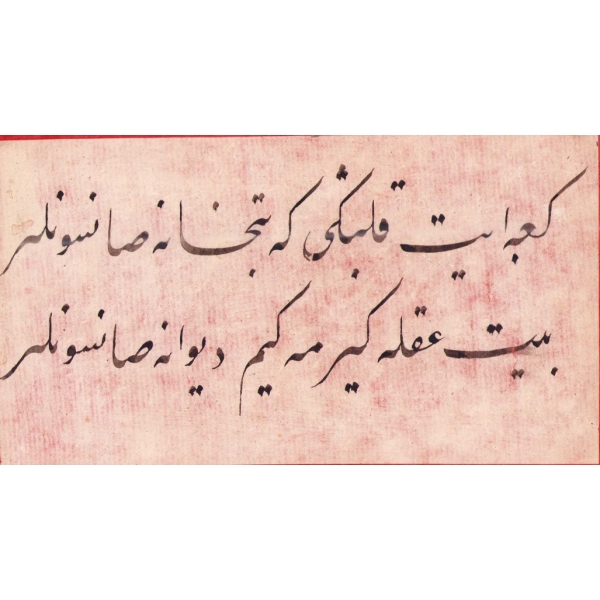 كعبه ايت قلبڭى كه بتخانه صانسونلر
بيت عقله كيرمه كيم ديوانه صانسونلر